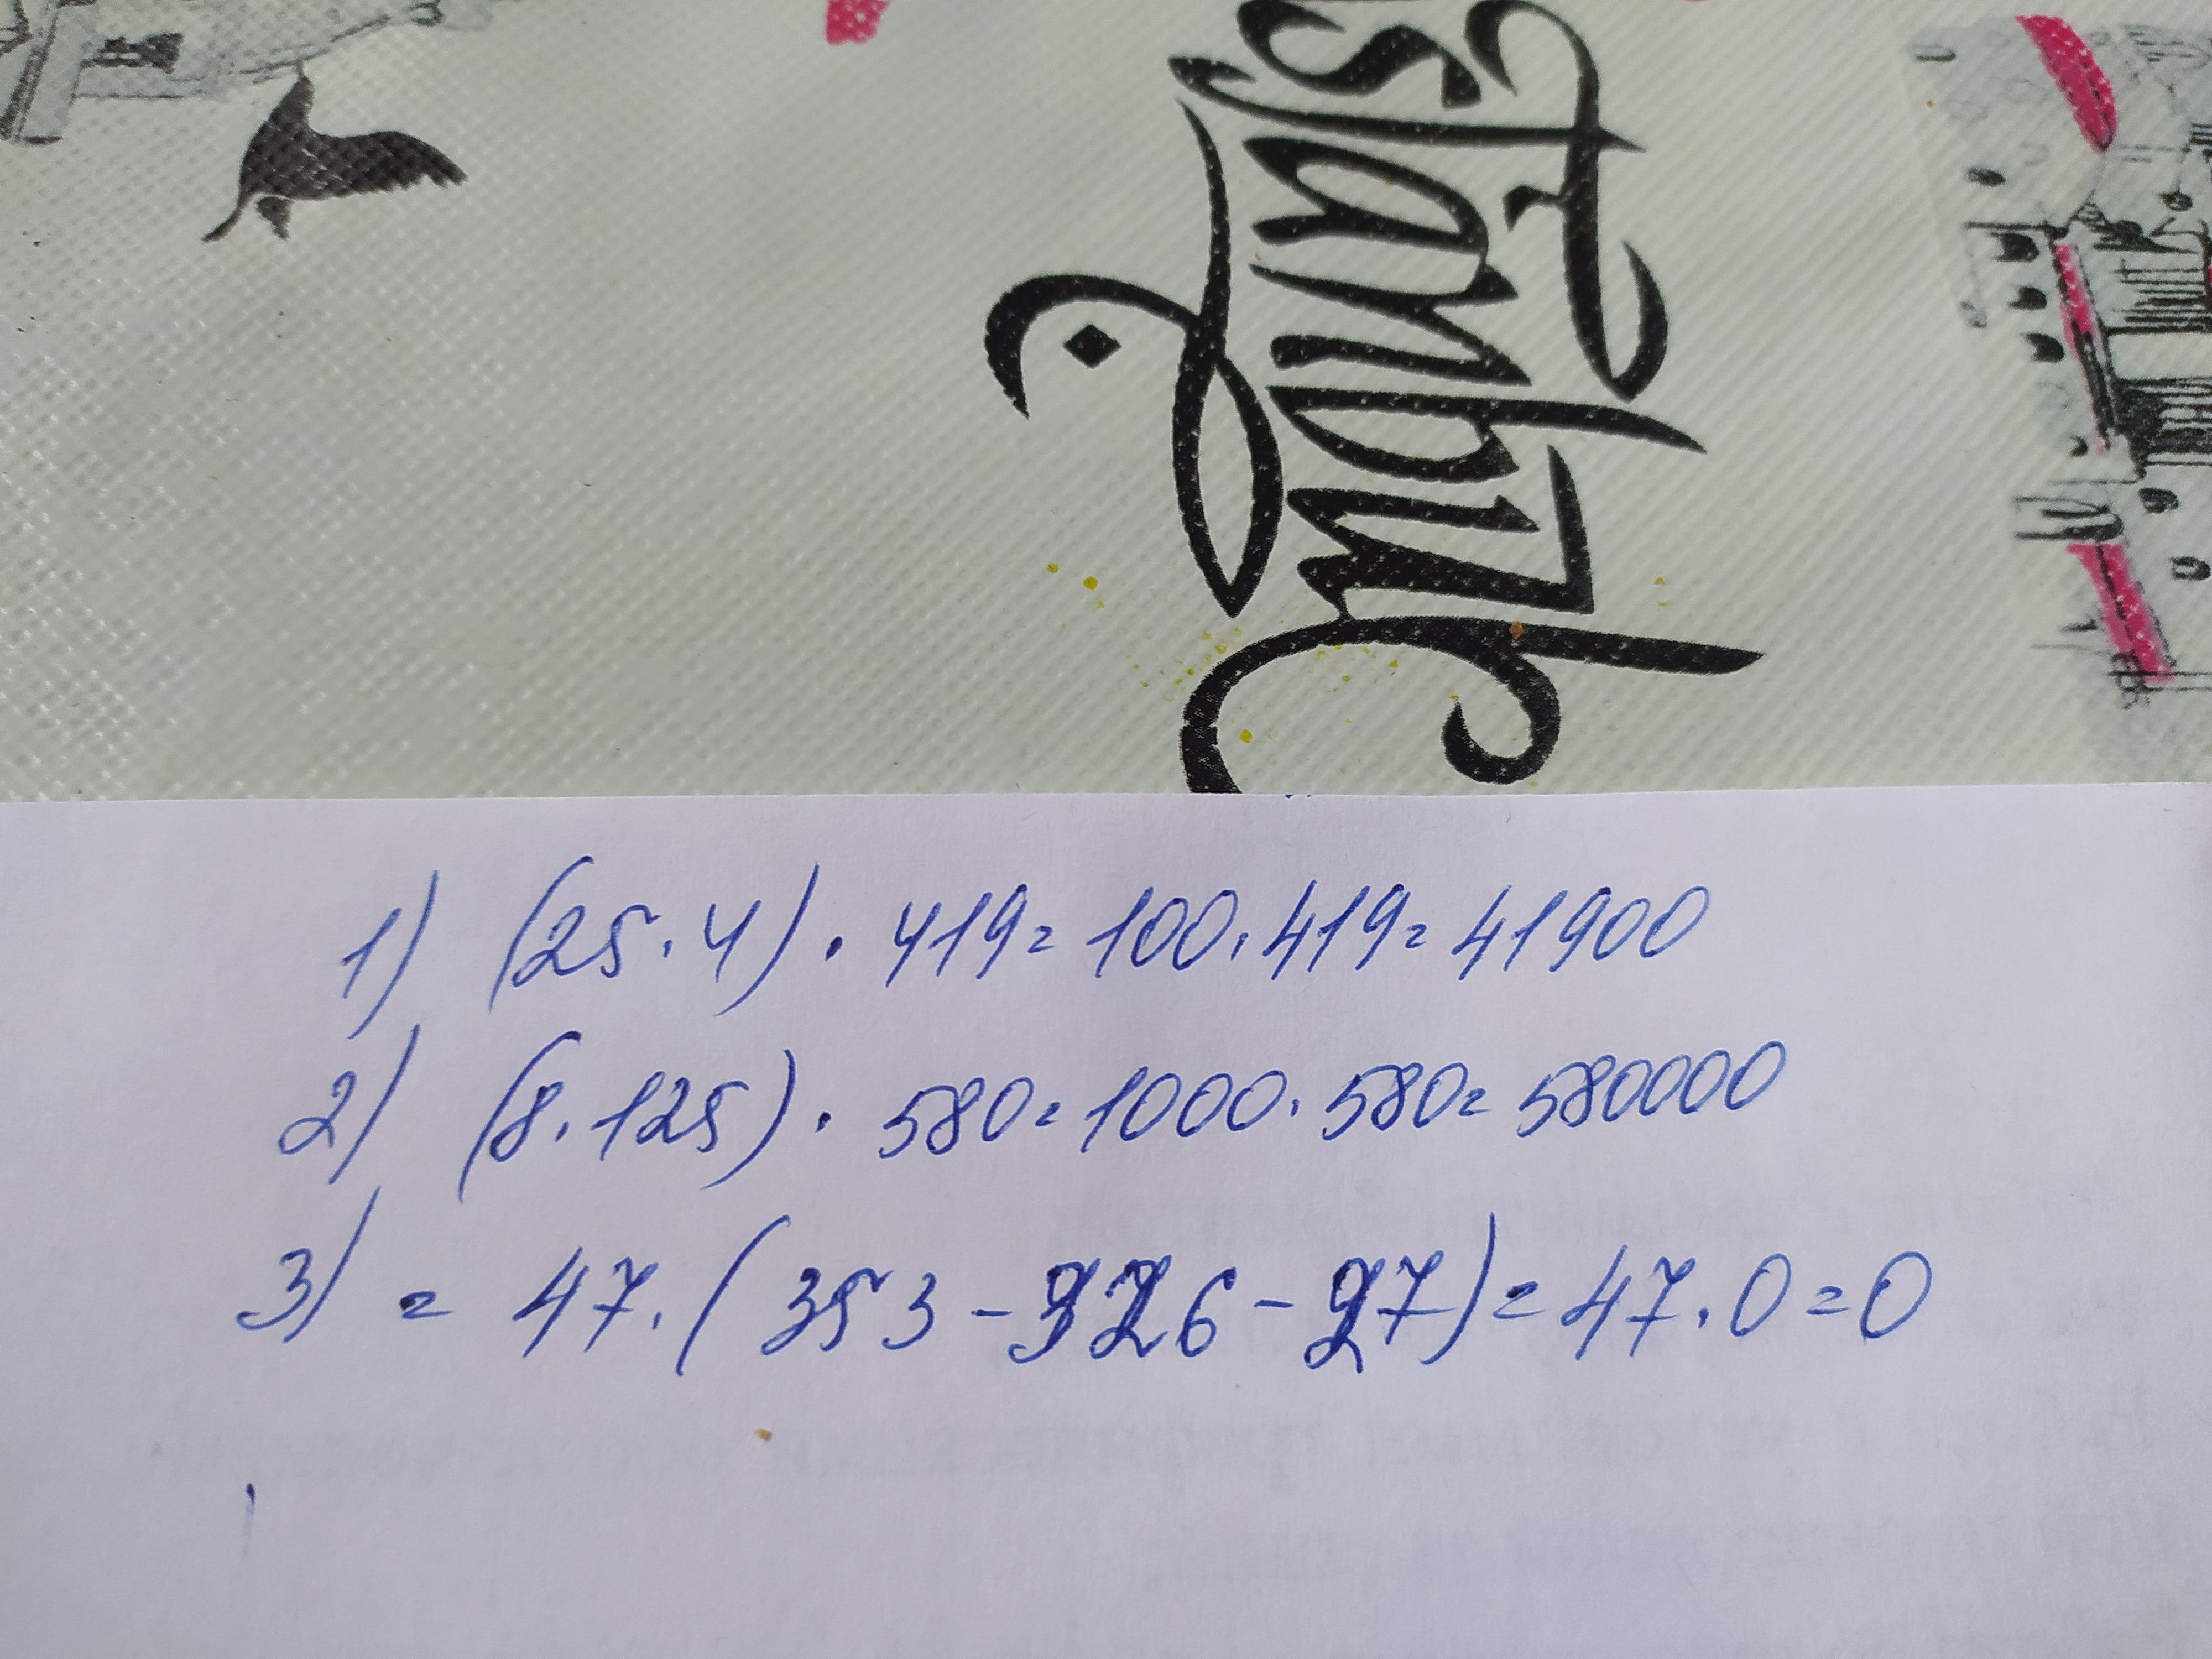 istanbul
1) (25·4)·419=100·419=41900
2) (8·125)·580=1000·580=580000
3) = 47·(353-326-27)=47·0=0